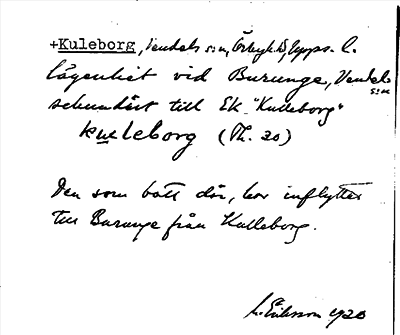 +Kuleborg, Vendels sn, Örbyh. hd, Upps. l.
lägenhet vid Burunge, Vendels sn
sekundärt till Ek. "Kulleborg"
kuleborg (Th. 20)
Den som bott där, har inflyttat
till Burunge från Kulleborg.
Eriksson 1920